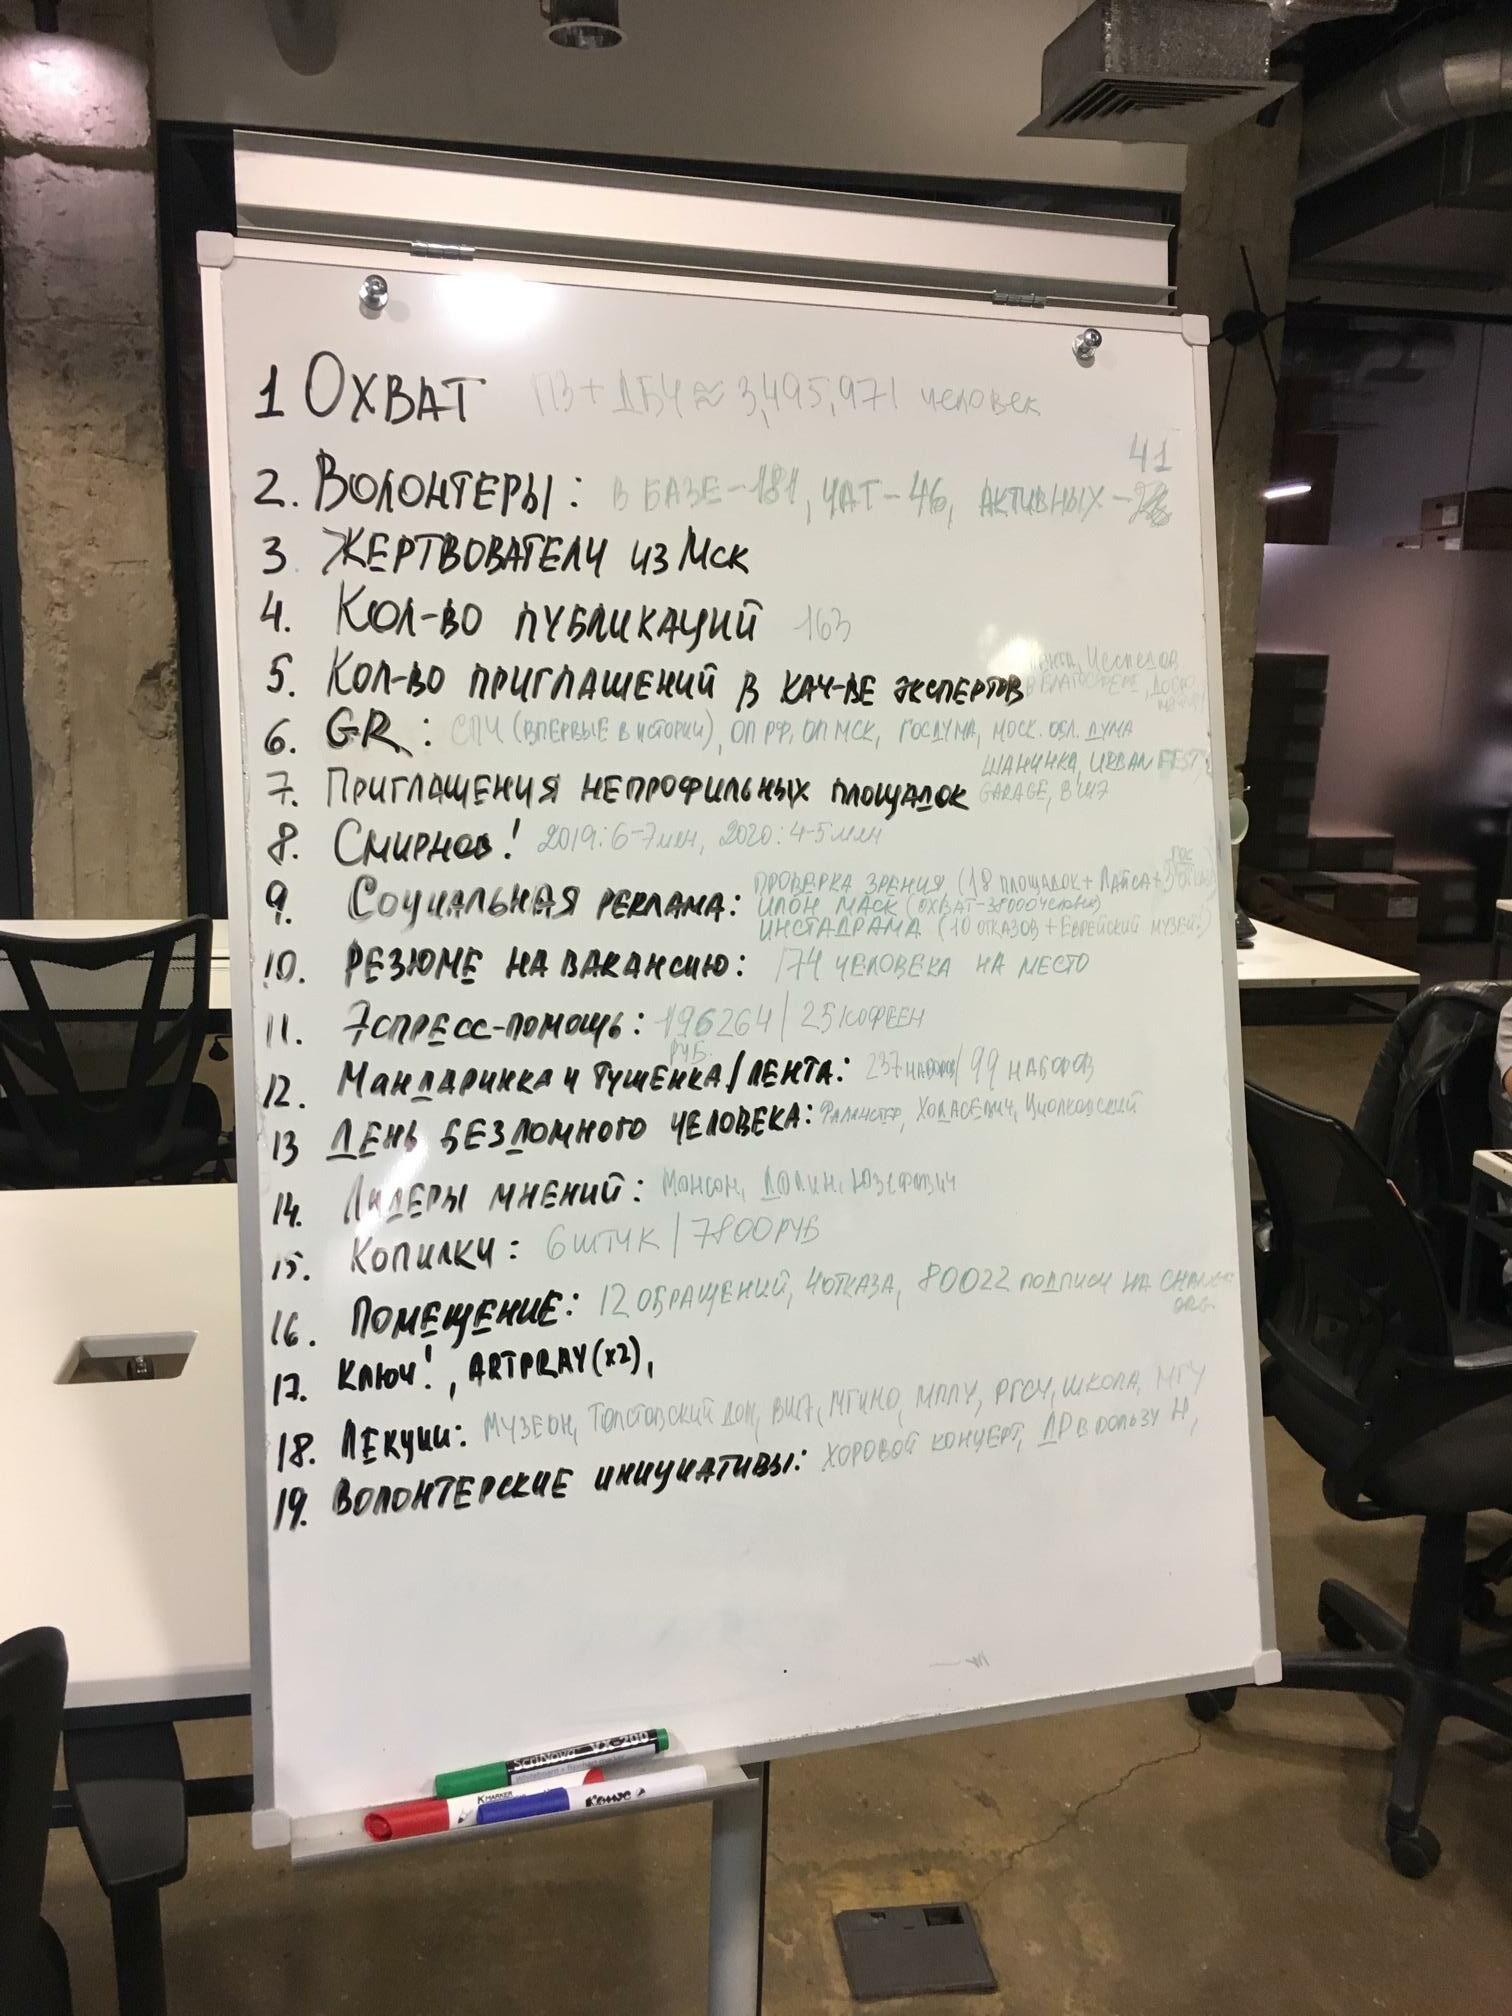 1 ОХВАТ ПЗ + ДБЧ ≈ 3,495,971 человек
41
2. ВОЛОНТЕРЫ: В БАЗЕ - 181, ЧАТ - 46, АКТИВНЫХ -
3. ЖЕРТВОВАТЕЛИ ИЗ МСК
4. КОЛ-ВО ПУБЛИКАЦИЙ 163
5. КОЛ-ВО ПРИГЛАШЕНИЙ В КАЧ-ВЕ ЭКСПЕРТОВ
6. GR: СПЧ (ВПЕРВЫЕ В ИСТОРИИ), ОП РФ, ОП МСК, ГОСДУМА, МОСК. ОБЛ. ДУМА
ШАНИНКА, URBAN FEST,
7. ПРИГЛАШЕНИЯ НЕПРОФИЛЬНЫХ ПЛОЩАДОК GARAGE,
8. СМИРНОВ! 2019: 6-7 млн, 2020: 4-5 млн
ПРОВЕРКА ЗРЕНИЯ (18 ПЛОЩАДОК +
9. СОЦИАЛЬНАЯ РЕКЛАМА: ИЛОН МАСК
ИНСТАДРАМА (10 ОТКАЗОВ + ЕВРЕЙСКИЙ МУЗЕЙ!)
10. РЕЗЮМЕ НА ВАКАНСИЮ: 174 ЧЕЛОВЕКА НА МЕСТО
11. ЭСПРЕСС-ПОМОЩЬ: 196264 / 25 КОФЕЕН
РУБ.
12. МАНДАРИНКА И ТУШЕНКА/ЛЕНТА: 237 НАБОРОВ / 99 НАБОРОВ
13 ДЕНЬ БЕЗДОМНОГО ЧЕЛОВЕКА: ФАЛАНСТЕР, ХОДАСЕВИЧ, ЦИОЛКОВСКИЙ
14. ЛИДЕРЫ МНЕНИЙ: МОНСОН, ДОЛИН, ЮЗЕФОВИЧ
15. КОПИЛКИ: 6 ШТУК / 7800 РУБ
16. ПОМЕЩЕНИЕ: 12 ОБРАЩЕНИЙ, 4 ОТКАЗА, 80022 ПОДПИСИ НА CHANGE
ORG.
17. КЛЮЧ!, ARTPRAY (x2),
18. ЛЕКЦИИ: МУЗЕОН, ТОЛСТОВСКИЙ ДОМ, МГИМО, МППУ, РГСУ, ШКОЛА, МГУ
19. ВОЛОНТЕРСКИЕ ИНИЦИАТИВЫ: ХОРОВОЙ КОНЦЕРТ, ДР В ПОЛЬЗУ Н,
K MARKER
Комус